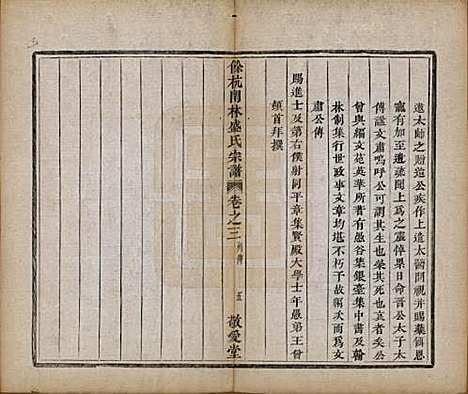 進太師之贈迨公疾作上遣太醫問視并賜藥餌恩
寵有加至遺疏聞上爲之震悼果日命晋公太子太
傅諡文肅嗚呼公可謂其生也榮其死也哀者矣公
曾與編文苑英華所著有愚谷集銀臺集中書集翰
林制集行世政事文章均堪不朽于故揭次其畧爲文
肅公傳
賜進士及第右僕射同平章集賢殿大學士年愚弟王曾
頓首拜撰
餘杭閒林盛氏宗譜
卷之三
列傳
五
敬愛堂